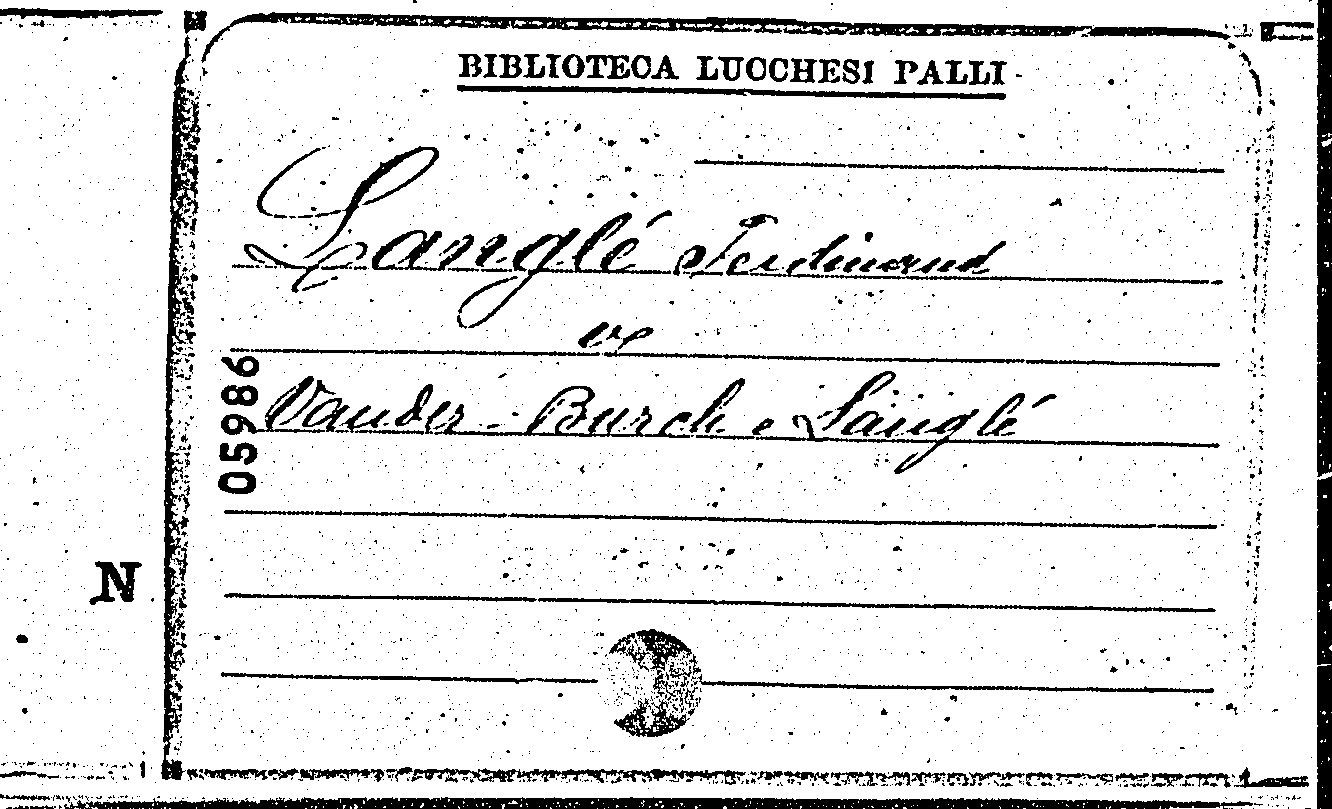 BIBLIOTECA LUCCHESI PALLI
Langlé Ferdinand
ve
Vander-Burch e Langlé
05986
N